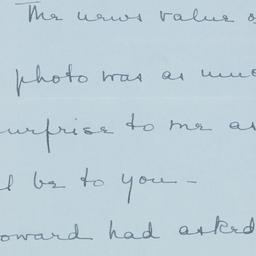 The news value o
photo was as muc
surprise to me as
l be to you –
oward had asked